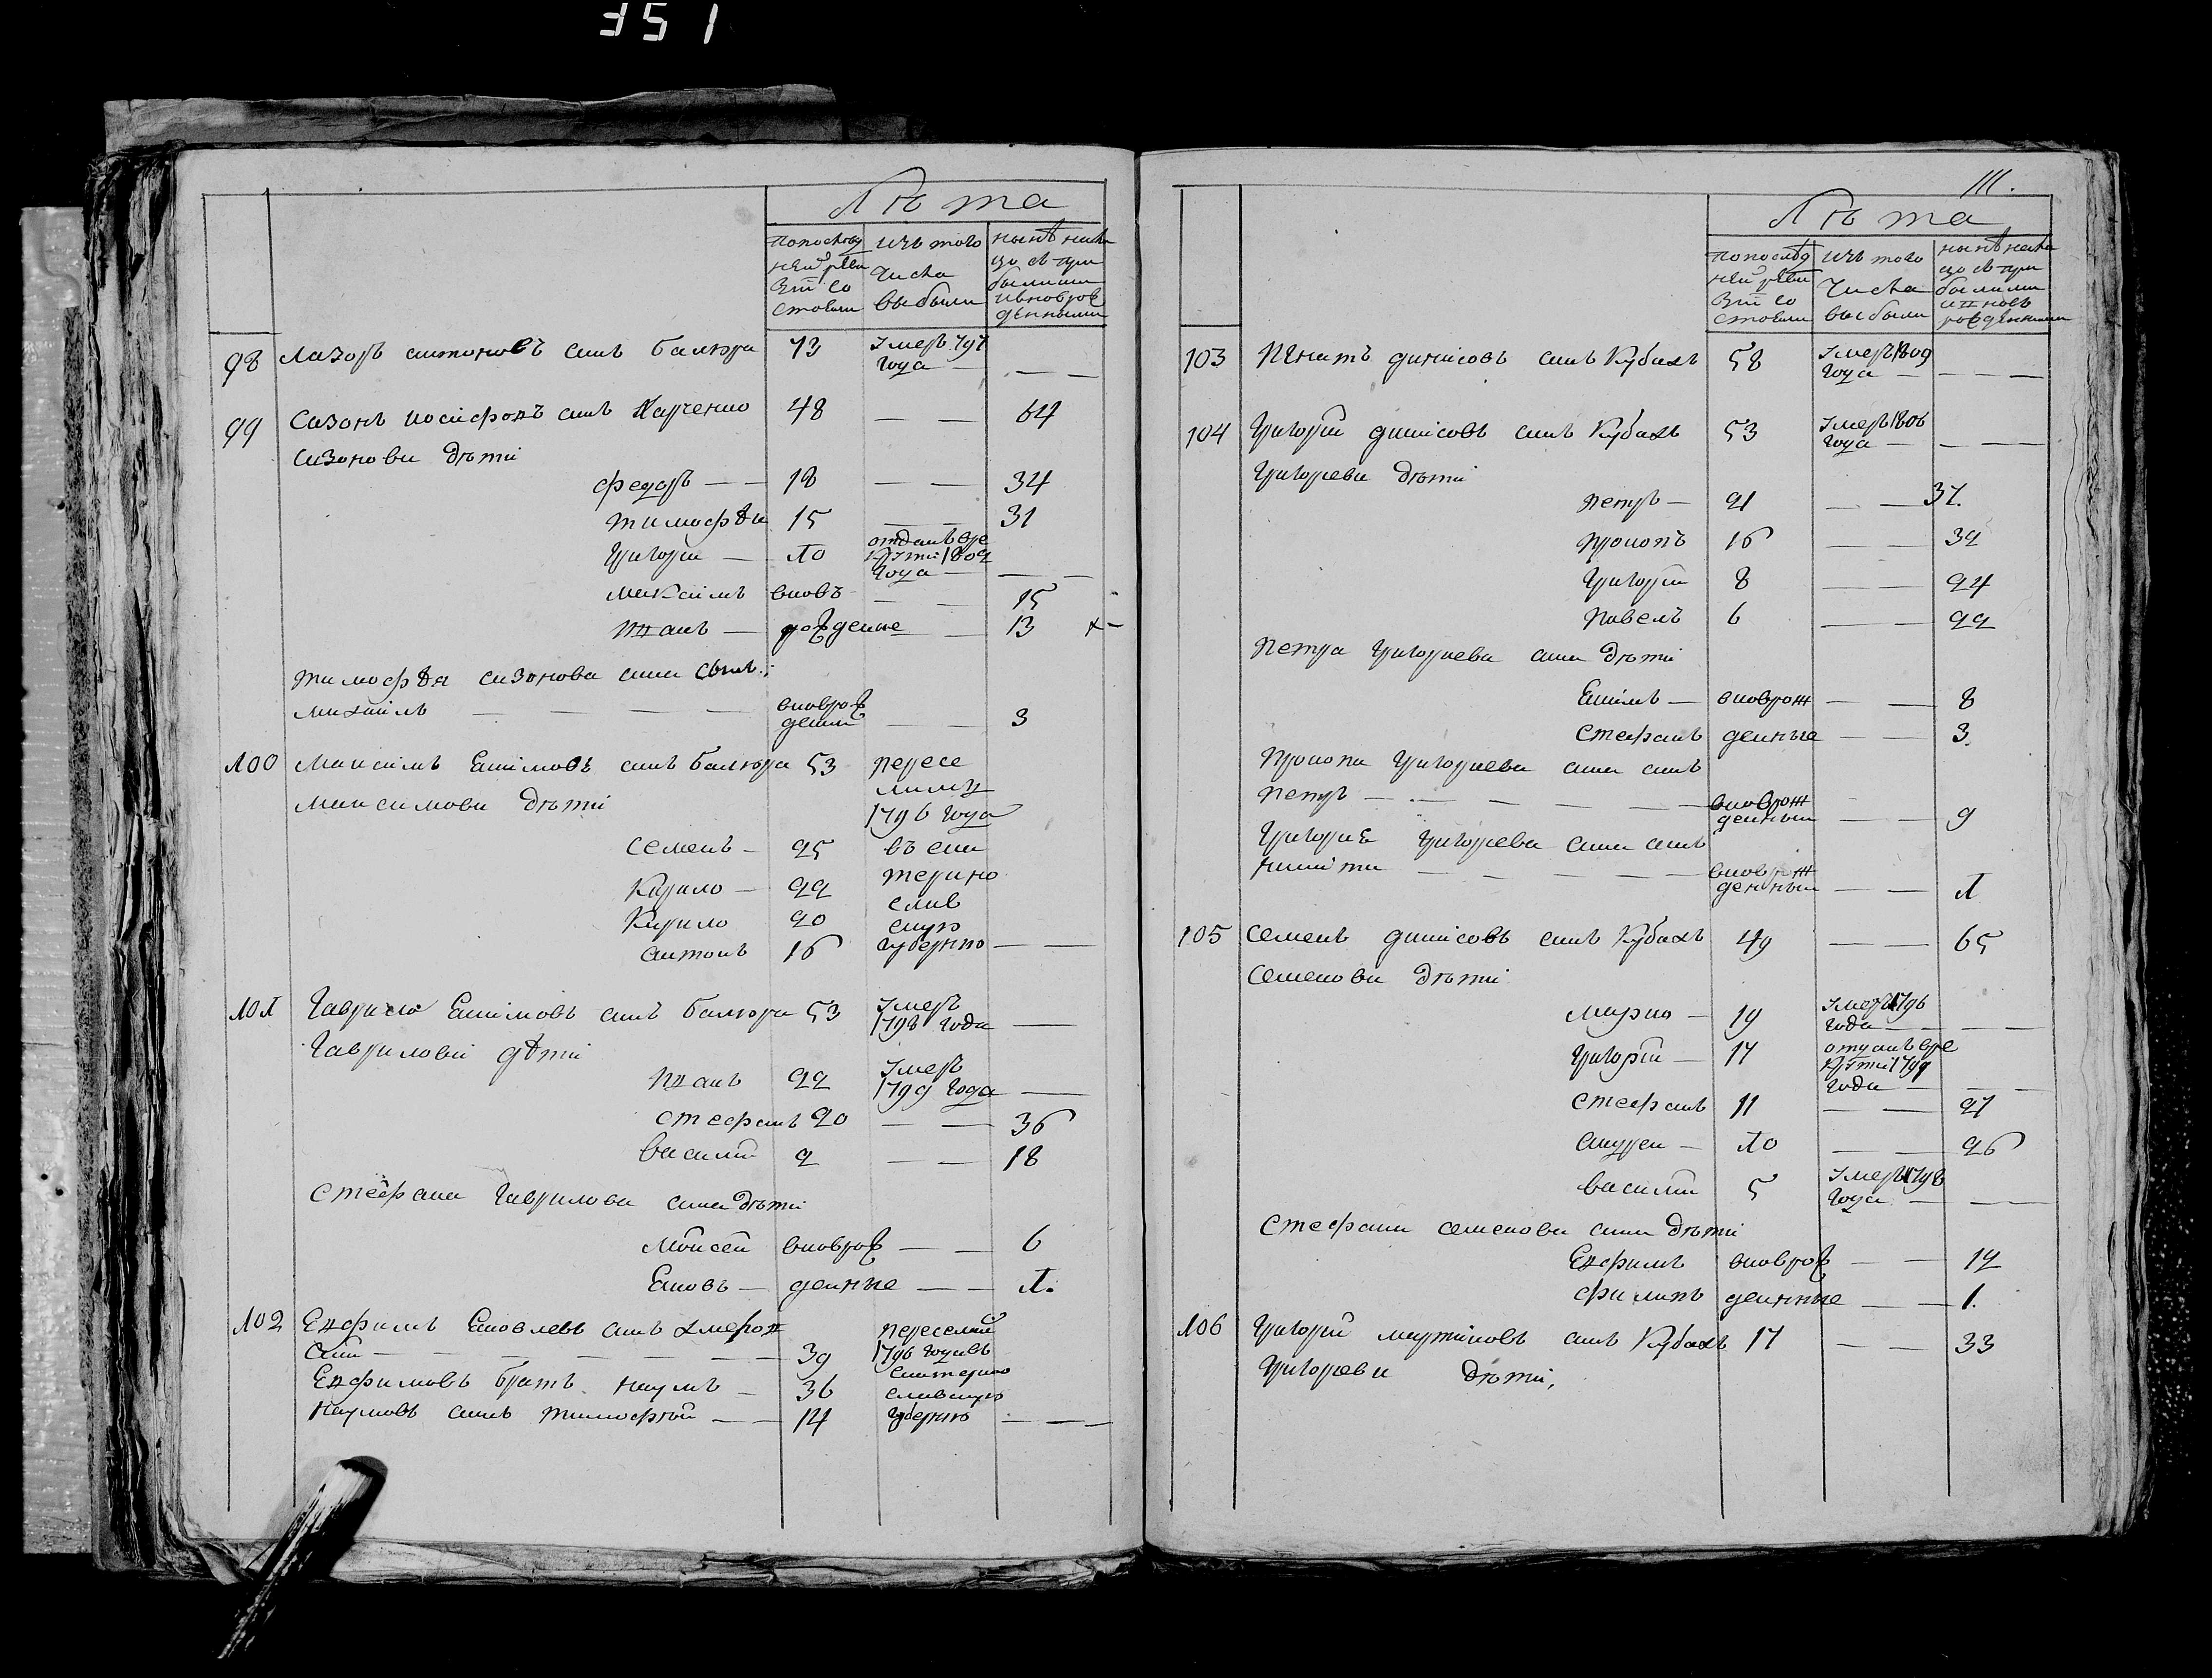 351
Лѣта
попослѣд
ней реви
зіи со
стояли
изъ того
числа
выбыли
нынѣ нали
цо съ при
былими
ивновро
денными
98 Лазоръ антоновъ синъ балюра 73 Умеръ 797
года — — —
99 Сазонъ иосифовъ синъ Харченко 48 — — 64
Сазонови дѣти
федоръ — — 18 — — 34
тимофѣи 15 — — 31
григори — 10 отданъ вре
крути 1802
года — — —
максимъ вновъ — — 15
иванъ — рожденые — 13
тимофѣя сазонова сина синъ
михаилъ — — — — вноврож
дени — — 3
100 Максимъ Екимовъ синъ балюра 53 пересе
лили
1796 года
въ ека
терино
слав
скую
губернию — —
Максимови дѣти
Семенъ — 25
Кирило — 22
Кирило 20
антонъ 16
101 Гаврило Екимовъ синъ балюра 53 Умеръ
1798 года —
Гаврилови дѣти
иванъ 22 Умеръ
1799 года —
стефанъ 20 — — 36
василий 2 — — 18
Стефана Гаврилова сина дѣти
мойсей вноврож — — 6
Яковъ — денные — — 1.
102 Евфимъ Яковлевъ синъ
39 переселий
1796 годавъ
Екатерино
славскую
губернию — — —
Евфимовъ братъ наумъ — 36
наумовъ синъ тимофѣй — — 14
111.
Лѣта
попослѣд
ней реви
зіи со
стояли
изъ того
числа
выбыли
нынѣ нали
цо съ при
былими
ивновъ
рожденными
103 Игнатъ динисовъ синъ Кубахъ 58 Умеръ 1809
года — — — —
104 Григорій динисовъ синъ Кубахъ 53 Умеръ 1806
года — — — —
Григориеви дѣти
петръ — 21 — — 37.
прокопъ 16 — — 32
григорій 8 — — 24
павелъ 6 — — 22
Петра григориева сина дѣти
Екимъ — вноврож — — 8
стефанъ денные — — 3.
Прокопа григориева сина синъ
петръ — — — — — вноврож
денный — — 9
Григорие григориева сина синъ
никита — — — — — вноврож
денный — — 1
105 Семенъ динисовъ синъ Кубахъ 49 — — 65
Семенови дѣти
марко — 19 Умеръ 1796
года — — — —
григорій — 17 отданъ вре
крути 1799
года — — —
стефанъ 11 — — 27
андреи — 10 — — 26
василий 5 Умеръ 1798
года — — —
Стефана семенова сина дѣти
Евфимъ вноврож — — 12
филипъ денные — — 1.
106 Григорій мартиновъ синъ Кубахъ 17 — — 33
Григориеви дѣти,